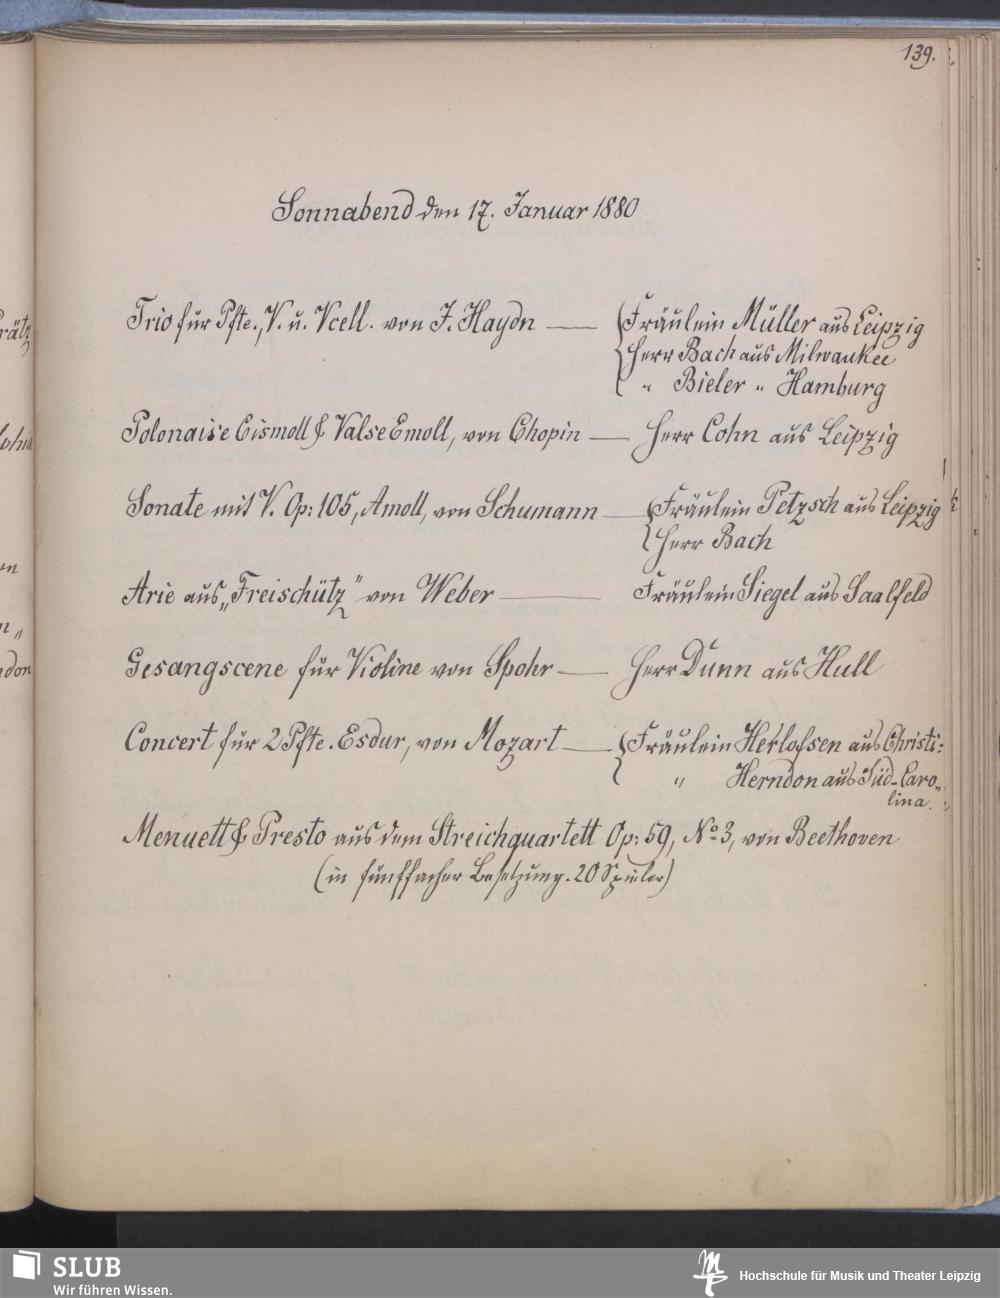 139.
Sonnabend den 17. Januar 1880
Trio für Pfte., V. u. Vcell. von J. Haydn — Fräulein Müller aus Leipzig
Herr Bach aus Milwaukee
" Bieler " Hamburg
Polonaise Cismoll & Valse Emoll, von Chopin — Herr Cohn aus Leipzig
Sonate mit V. Op: 105, Amoll, von Schumann — Fräulein Petzsch aus Leipzig
Herr Bach
Arie aus „Freischütz" von Weber — Fräulein Siegel aus Saalfeld
Gesangscene für Violine von Spohr — Herr Dunn aus Hull
Concert für 2 Pfte. Esdur, von Mozart — Fräulein aus Christi:
" Herndon aus Süd-Caro-
lina.
Menuett & Presto aus dem Streichquartett Op: 59, No 3, von Beethoven
(in fünffacher Besetzung. 20 Spieler)
rätz
ndon
SLUB
Wir führen Wissen.
Hochschule für Musik und Theater Leipzig